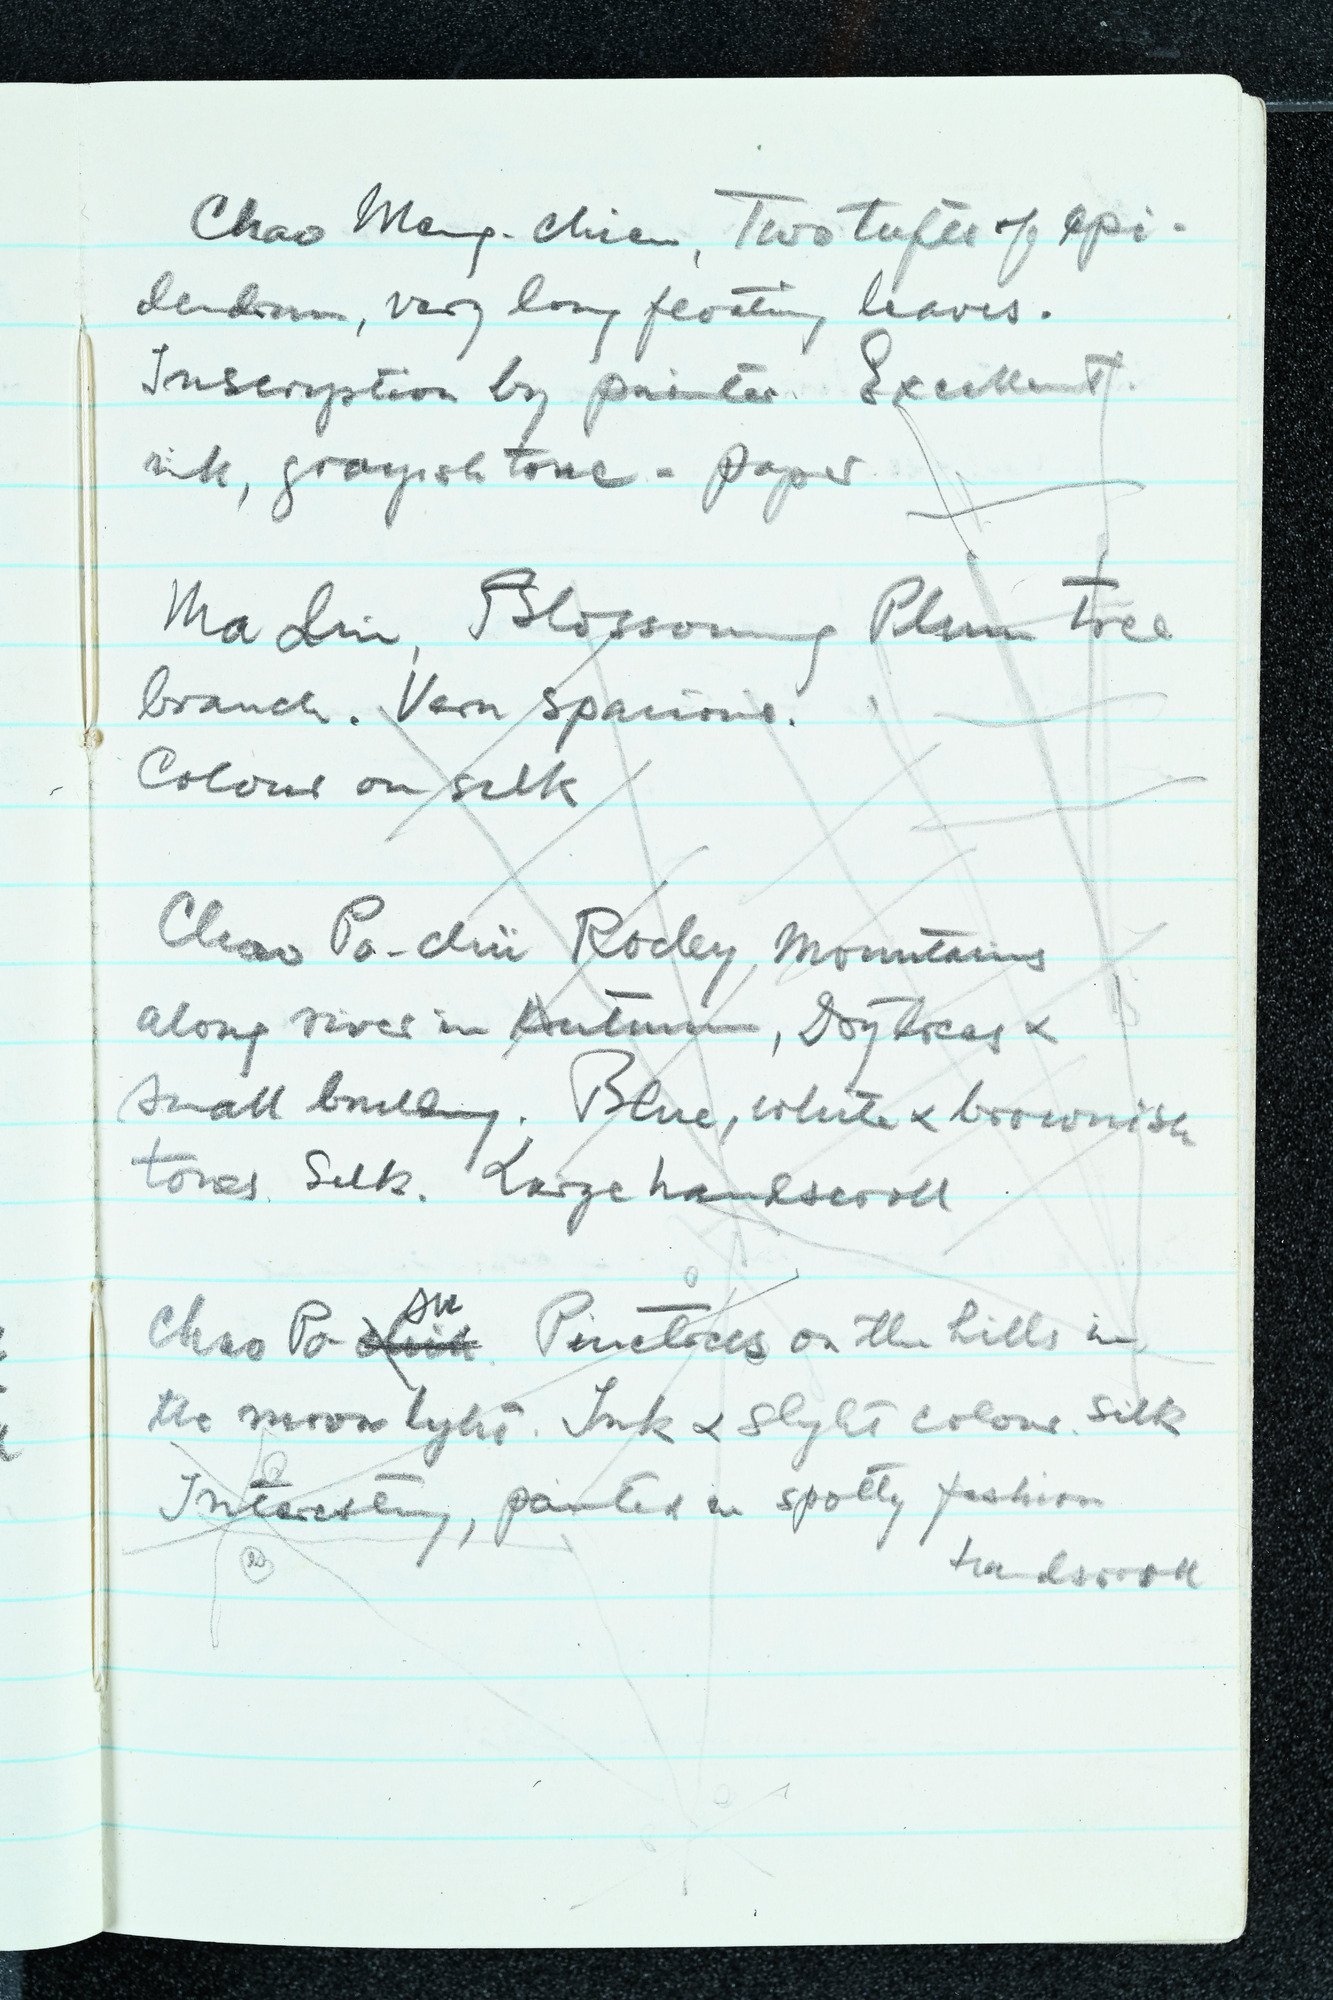 Chao Meng-chien, Two tufts of epi-
dendrum, very long floating leaves.
Inscription by painter. Excellent
ink, grayish tone - paper
Ma Lin, Blossoming Plum tree
branch. Very spacious.
Colour on silk
Chao Po-chü Rocky Mountains
along river in Autumn, Dry trees &
small building. Blue, white & brownish
tones. Silk. Large handscroll
su
Chao Po- Pinetrees on the hills in
the moon light. Ink & slight colour. Silk
Interesting, painted in spotty fashion
handscroll